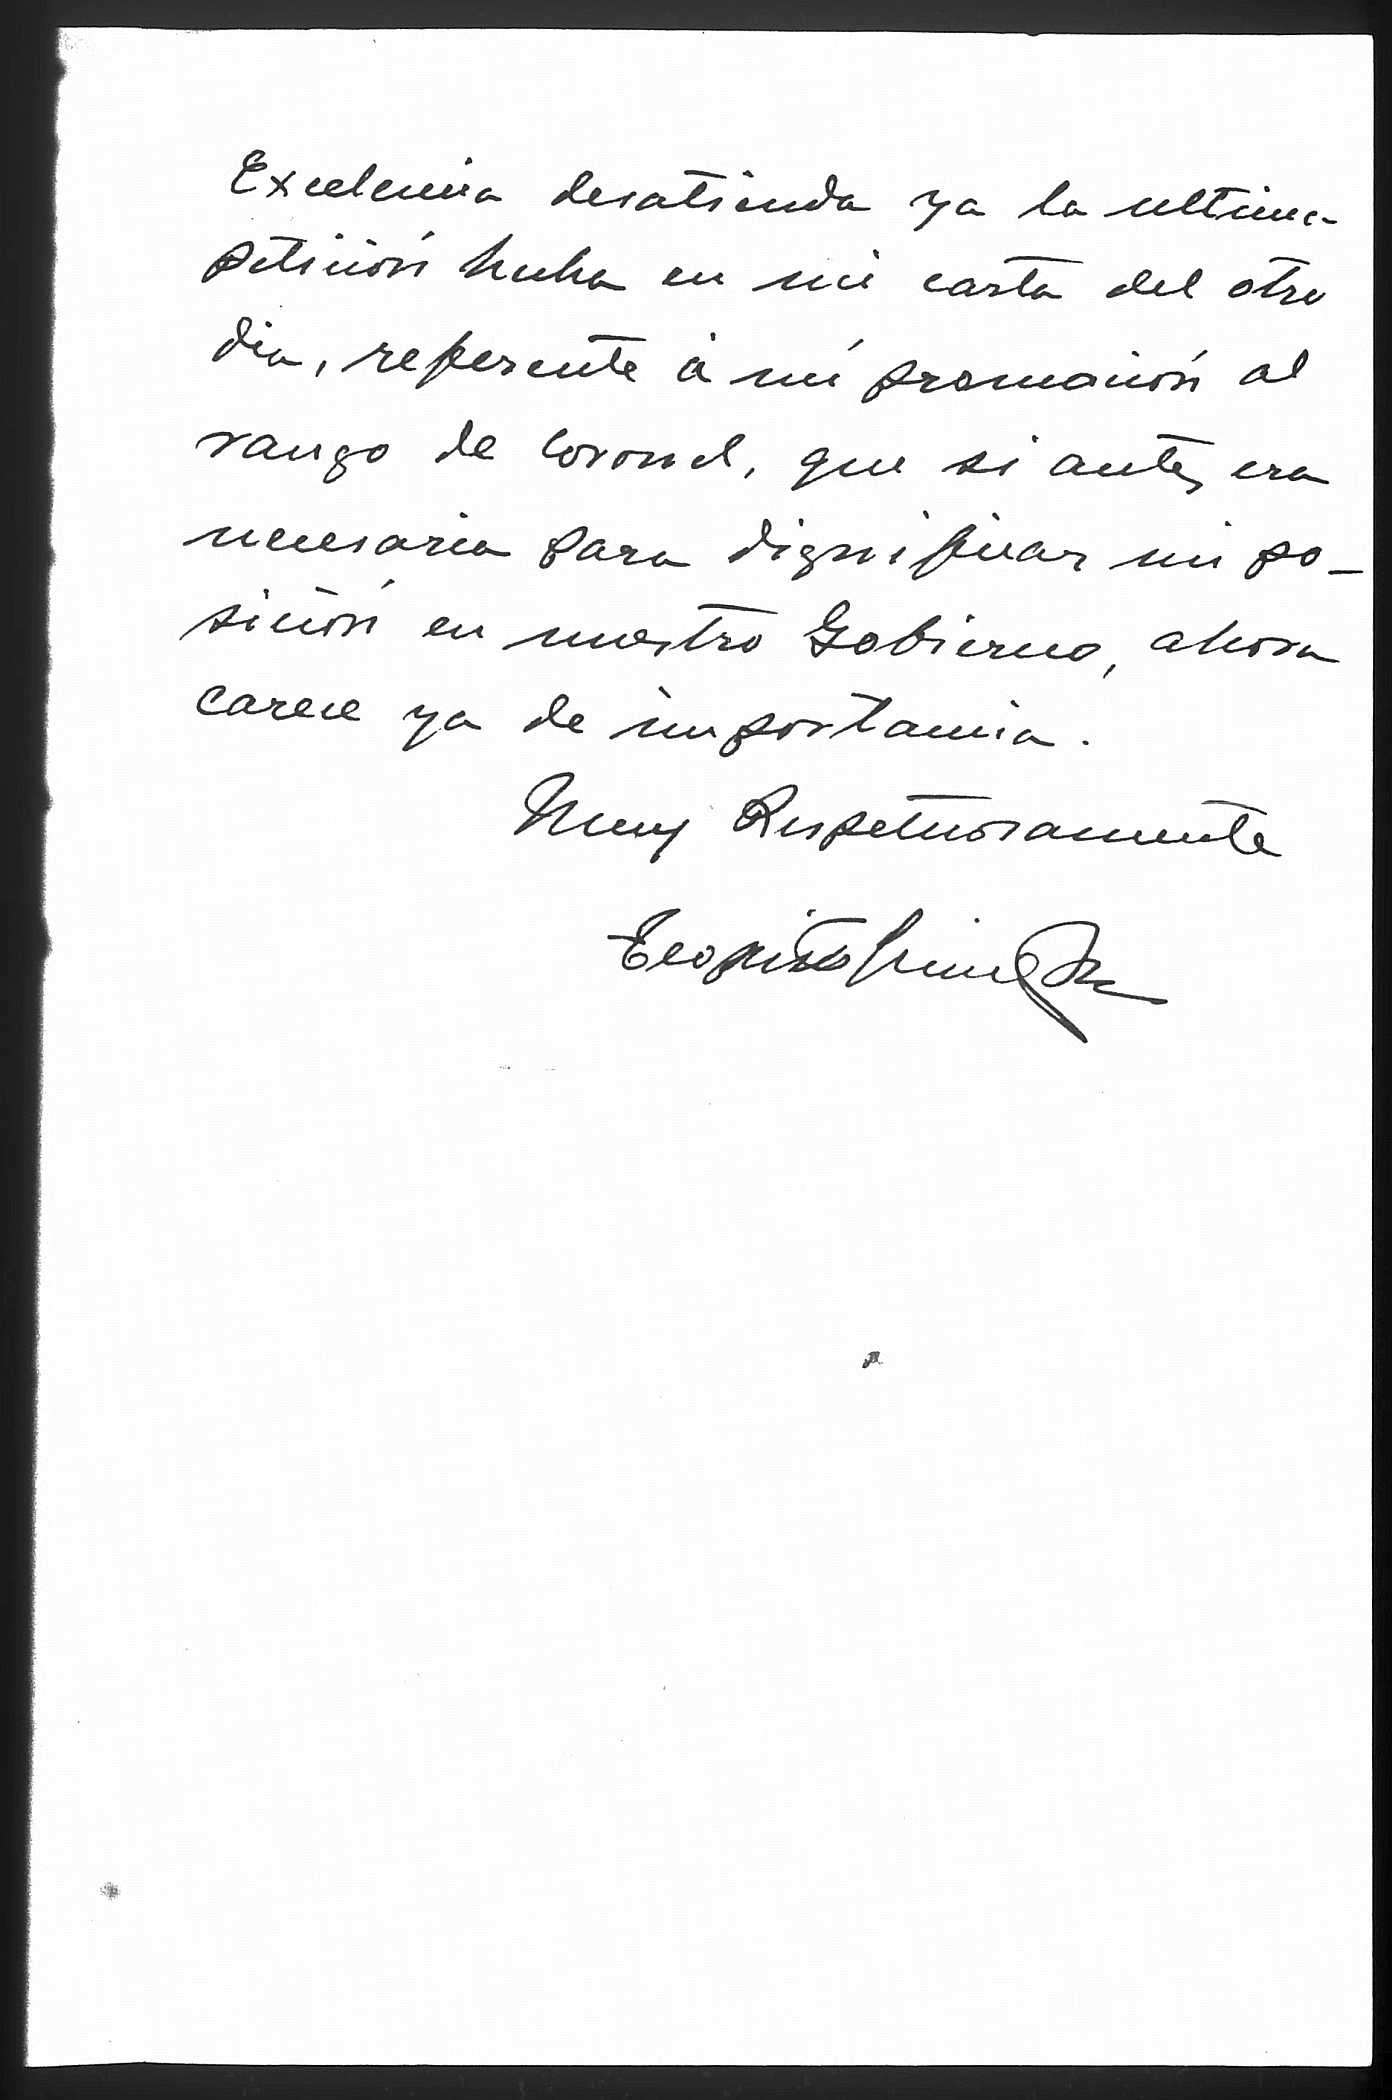 Excelencia desatienda ya la ultima
petición hecha en mi carta del otro
dia, referente á mi promoción al
rango de Coronel, que si antes era
necesaria para dignificar mi po-
sición en nuestro Gobierno, ahora
carece ya de importancia.
Muy Respetuosamente